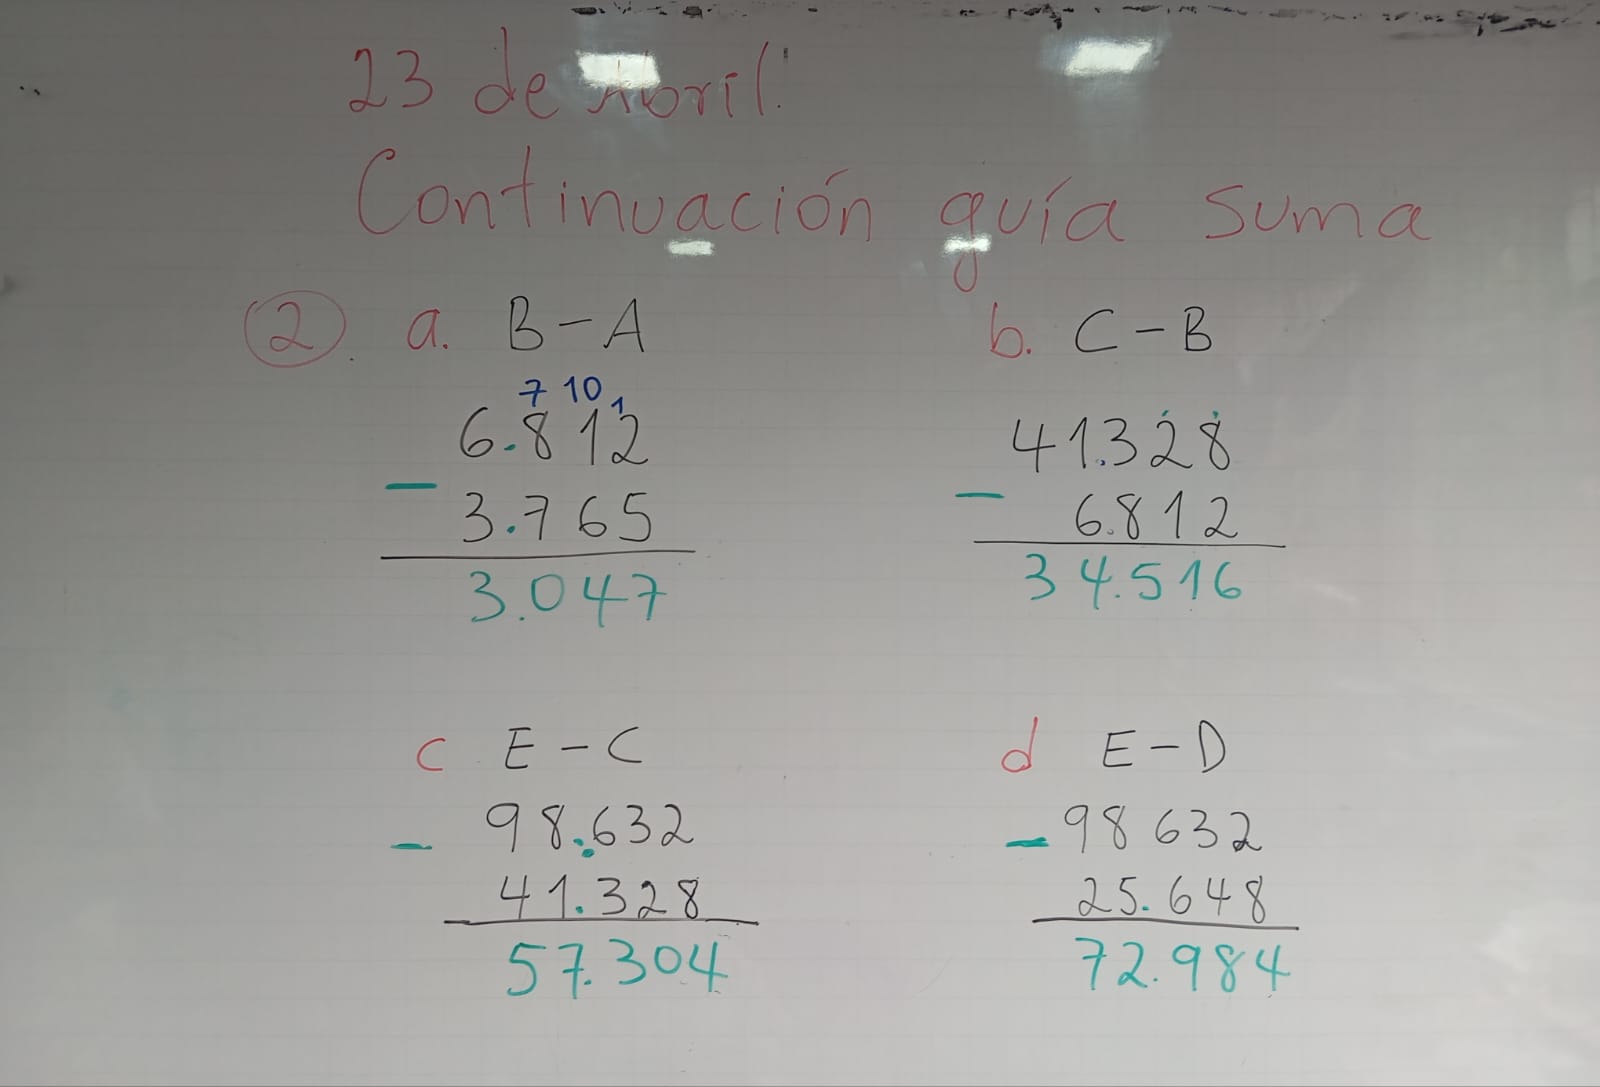 23 de Abril.
Continuación guía suma
2. a. B - A
7 10 1
6.812
- 3.765
3.047
b. C - B
41.328
- 6.812
34.516
c E - C
- 98.632
41.328
57.304
d E - D
- 98 632
25.648
72.984